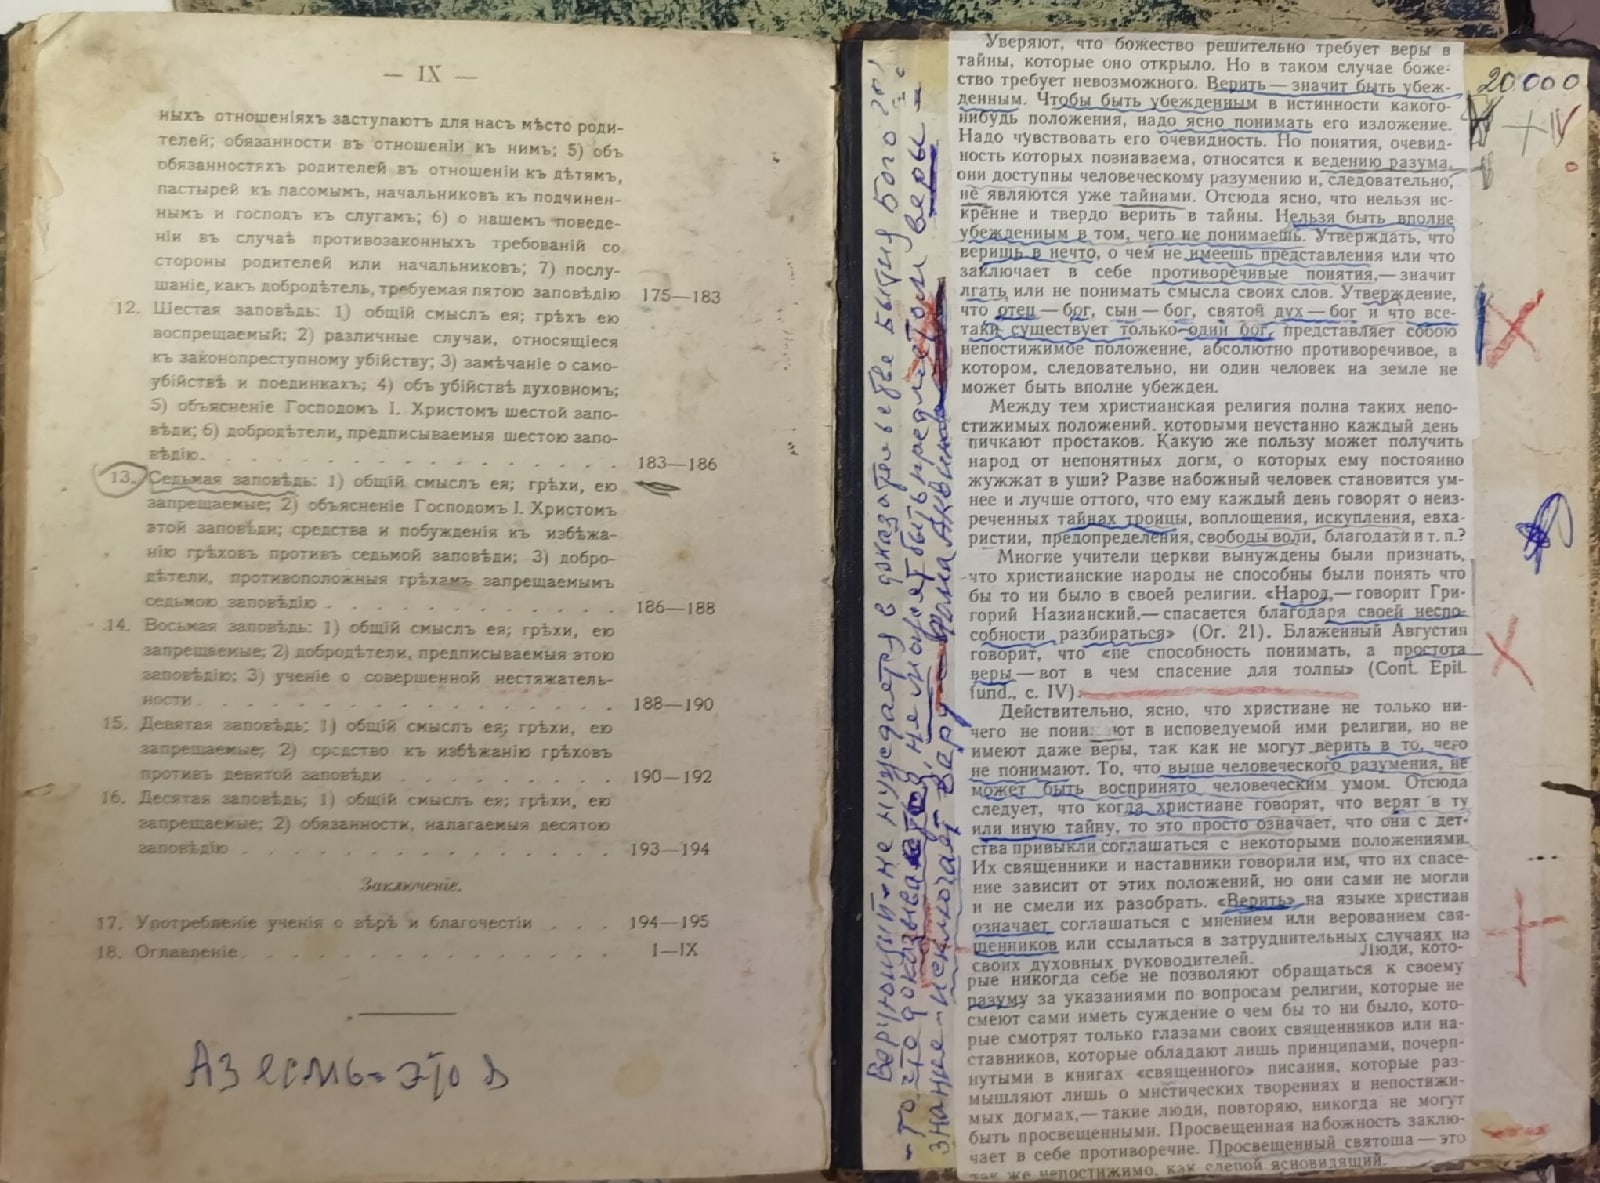 — IX —
ныхъ отношеніяхъ заступаютъ для насъ мѣсто роди-
телей; обязанности въ отношеніи къ нимъ; 5) объ
обязанностяхъ родителей въ отношеніи къ дѣтямъ,
пастырей къ пасомымъ, начальниковъ къ подчинен-
нымъ и господъ къ слугамъ; 6) о нашемъ поведе-
ніи въ случаѣ противозаконныхъ требованій со
стороны родителей или начальниковъ; 7) послу-
шаніе, какъ добродѣтель, требуемая пятою заповѣдію 175—183
12. Шестая заповѣдь: 1) общій смыслъ ея; грѣхъ ею
воспрещаемый; 2) различные случаи, относящіеся
къ законопреступному убійству; 3) замѣчаніе о само-
убійствѣ и поединкахъ; 4) объ убійствѣ духовномъ;
5) объясненіе Господомъ I. Христомъ шестой запо-
вѣди; 6) добродѣтели, предписываемыя шестою запо-
вѣдію. . . . . . . . . . . . . . . . 183—186
13. Седьмая заповѣдь: 1) общій смыслъ ея; грѣхи, ею
запрещаемые; 2) объясненіе Господомъ I. Христомъ
этой заповѣди; средства и побужденія къ избѣжа-
нію грѣховъ противъ седьмой заповѣди; 3) добро-
дѣтели, противоположныя грѣхамъ запрещаемымъ
седьмою заповѣдію . . . . . . . . . . . 186—188
14. Восьмая заповѣдь: 1) общій смыслъ ея; грѣхи, ею
запрещаемые; 2) добродѣтели, предписываемыя этою
заповѣдію; 3) ученіе о совершенной нестяжатель-
ности . . . . . . . . . . . . . . . . 188—190
15. Девятая заповѣдь; 1) общій смыслъ ея; грѣхи, ею
запрещаемые; 2) средство къ избѣжанію грѣховъ
противъ девятой заповѣди . . . . . . . . 190—192
16. Десятая заповѣдь; 1) общій смыслъ ея; грѣхи, ею
запрещаемые; 2) обязанности, налагаемыя десятою
заповѣдію . . . . . . . . . . . . . . 193—194
Заключеніе.
17. Употребленіе ученія о вѣрѣ и благочестіи . . . 194—195
18. Оглавленіе . . . . . . . . . . . . . . I—IX
Аз есмь - это я
Верующий - не нуждается в доказательстве бытия Бога
- То что доказывается, не может быть предметом веры -
знание - исключает веру - Фома Аквинский
20000
+ IV
Уверяют, что божество решительно требует веры в
тайны, которые оно открыло. Но в таком случае боже-
ство требует невозможного. Верить — значит быть убеж-
денным. Чтобы быть убежденным в истинности какого-
нибудь положения, надо ясно понимать его изложение.
Надо чувствовать его очевидность. Но понятия, очевид-
ность которых познаваема, относятся к ведению разума,
они доступны человеческому разумению и, следовательно,
не являются уже тайнами. Отсюда ясно, что нельзя ис-
кренне и твердо верить в тайны. Нельзя быть вполне
убежденным в том, чего не понимаешь. Утверждать, что
веришь в нечто, о чем не имеешь представления или что
заключает в себе противоречивые понятия, — значит
лгать или не понимать смысла своих слов. Утверждение,
что отец — бог, сын — бог, святой дух — бог и что все-
таки существует только один бог, представляет собою
непостижимое положение, абсолютно противоречивое, в
котором, следовательно, ни один человек на земле не
может быть вполне убежден.
Между тем христианская религия полна таких непо-
стижимых положений, которыми неустанно каждый день
пичкают простаков. Какую же пользу может получить
народ от непонятных догм, о которых ему постоянно
жужжат в уши? Разве набожный человек становится ум-
нее и лучше оттого, что ему каждый день говорят о неиз-
реченных тайнах троицы, воплощения, искупления, евха-
ристии, предопределения, свободы воли, благодати и т. п.?
Многие учители церкви вынуждены были признать,
что христианские народы не способны были понять что
бы то ни было в своей религии. «Народ, — говорит Гри-
горий Назианский, — спасается благодаря своей неспо-
собности разбираться» (Or. 21). Блаженный Августин
говорит, что «не способность понимать, а простота
веры — вот в чем спасение для толпы» (Cont. Epil.
fund., c. IV).
Действительно, ясно, что христиане не только ни-
чего не понимают в исповедуемой ими религии, но не
имеют даже веры, так как не могут верить в то, чего
не понимают. То, что выше человеческого разумения, не
может быть воспринято человеческим умом. Отсюда
следует, что когда христиане говорят, что верят в ту
или иную тайну, то это просто означает, что они с дет-
ства привыкли соглашаться с некоторыми положениями.
Их священники и наставники говорили им, что их спасе-
ние зависит от этих положений, но они сами не могли
и не смели их разобрать. «Верить» на языке христиан
означает соглашаться с мнением или верованием свя-
щенников или ссылаться в затруднительных случаях на
своих духовных руководителей. Люди, кото-
рые никогда себе не позволяют обращаться к своему
разуму за указаниями по вопросам религии, которые не
смеют сами иметь суждение о чем бы то ни было, кото-
рые смотрят только глазами своих священников или на-
ставников, которые обладают лишь принципами, почерп-
нутыми в книгах «священного» писания, которые раз-
мышляют лишь о мистических творениях и непостижи-
мых догмах, — такие люди, повторяю, никогда не могут
быть просвещенными. Просвещенная набожность заклю-
чает в себе противоречие. Просвещенный святоша — это
так же непостижимо, как слепой ясновидящий.